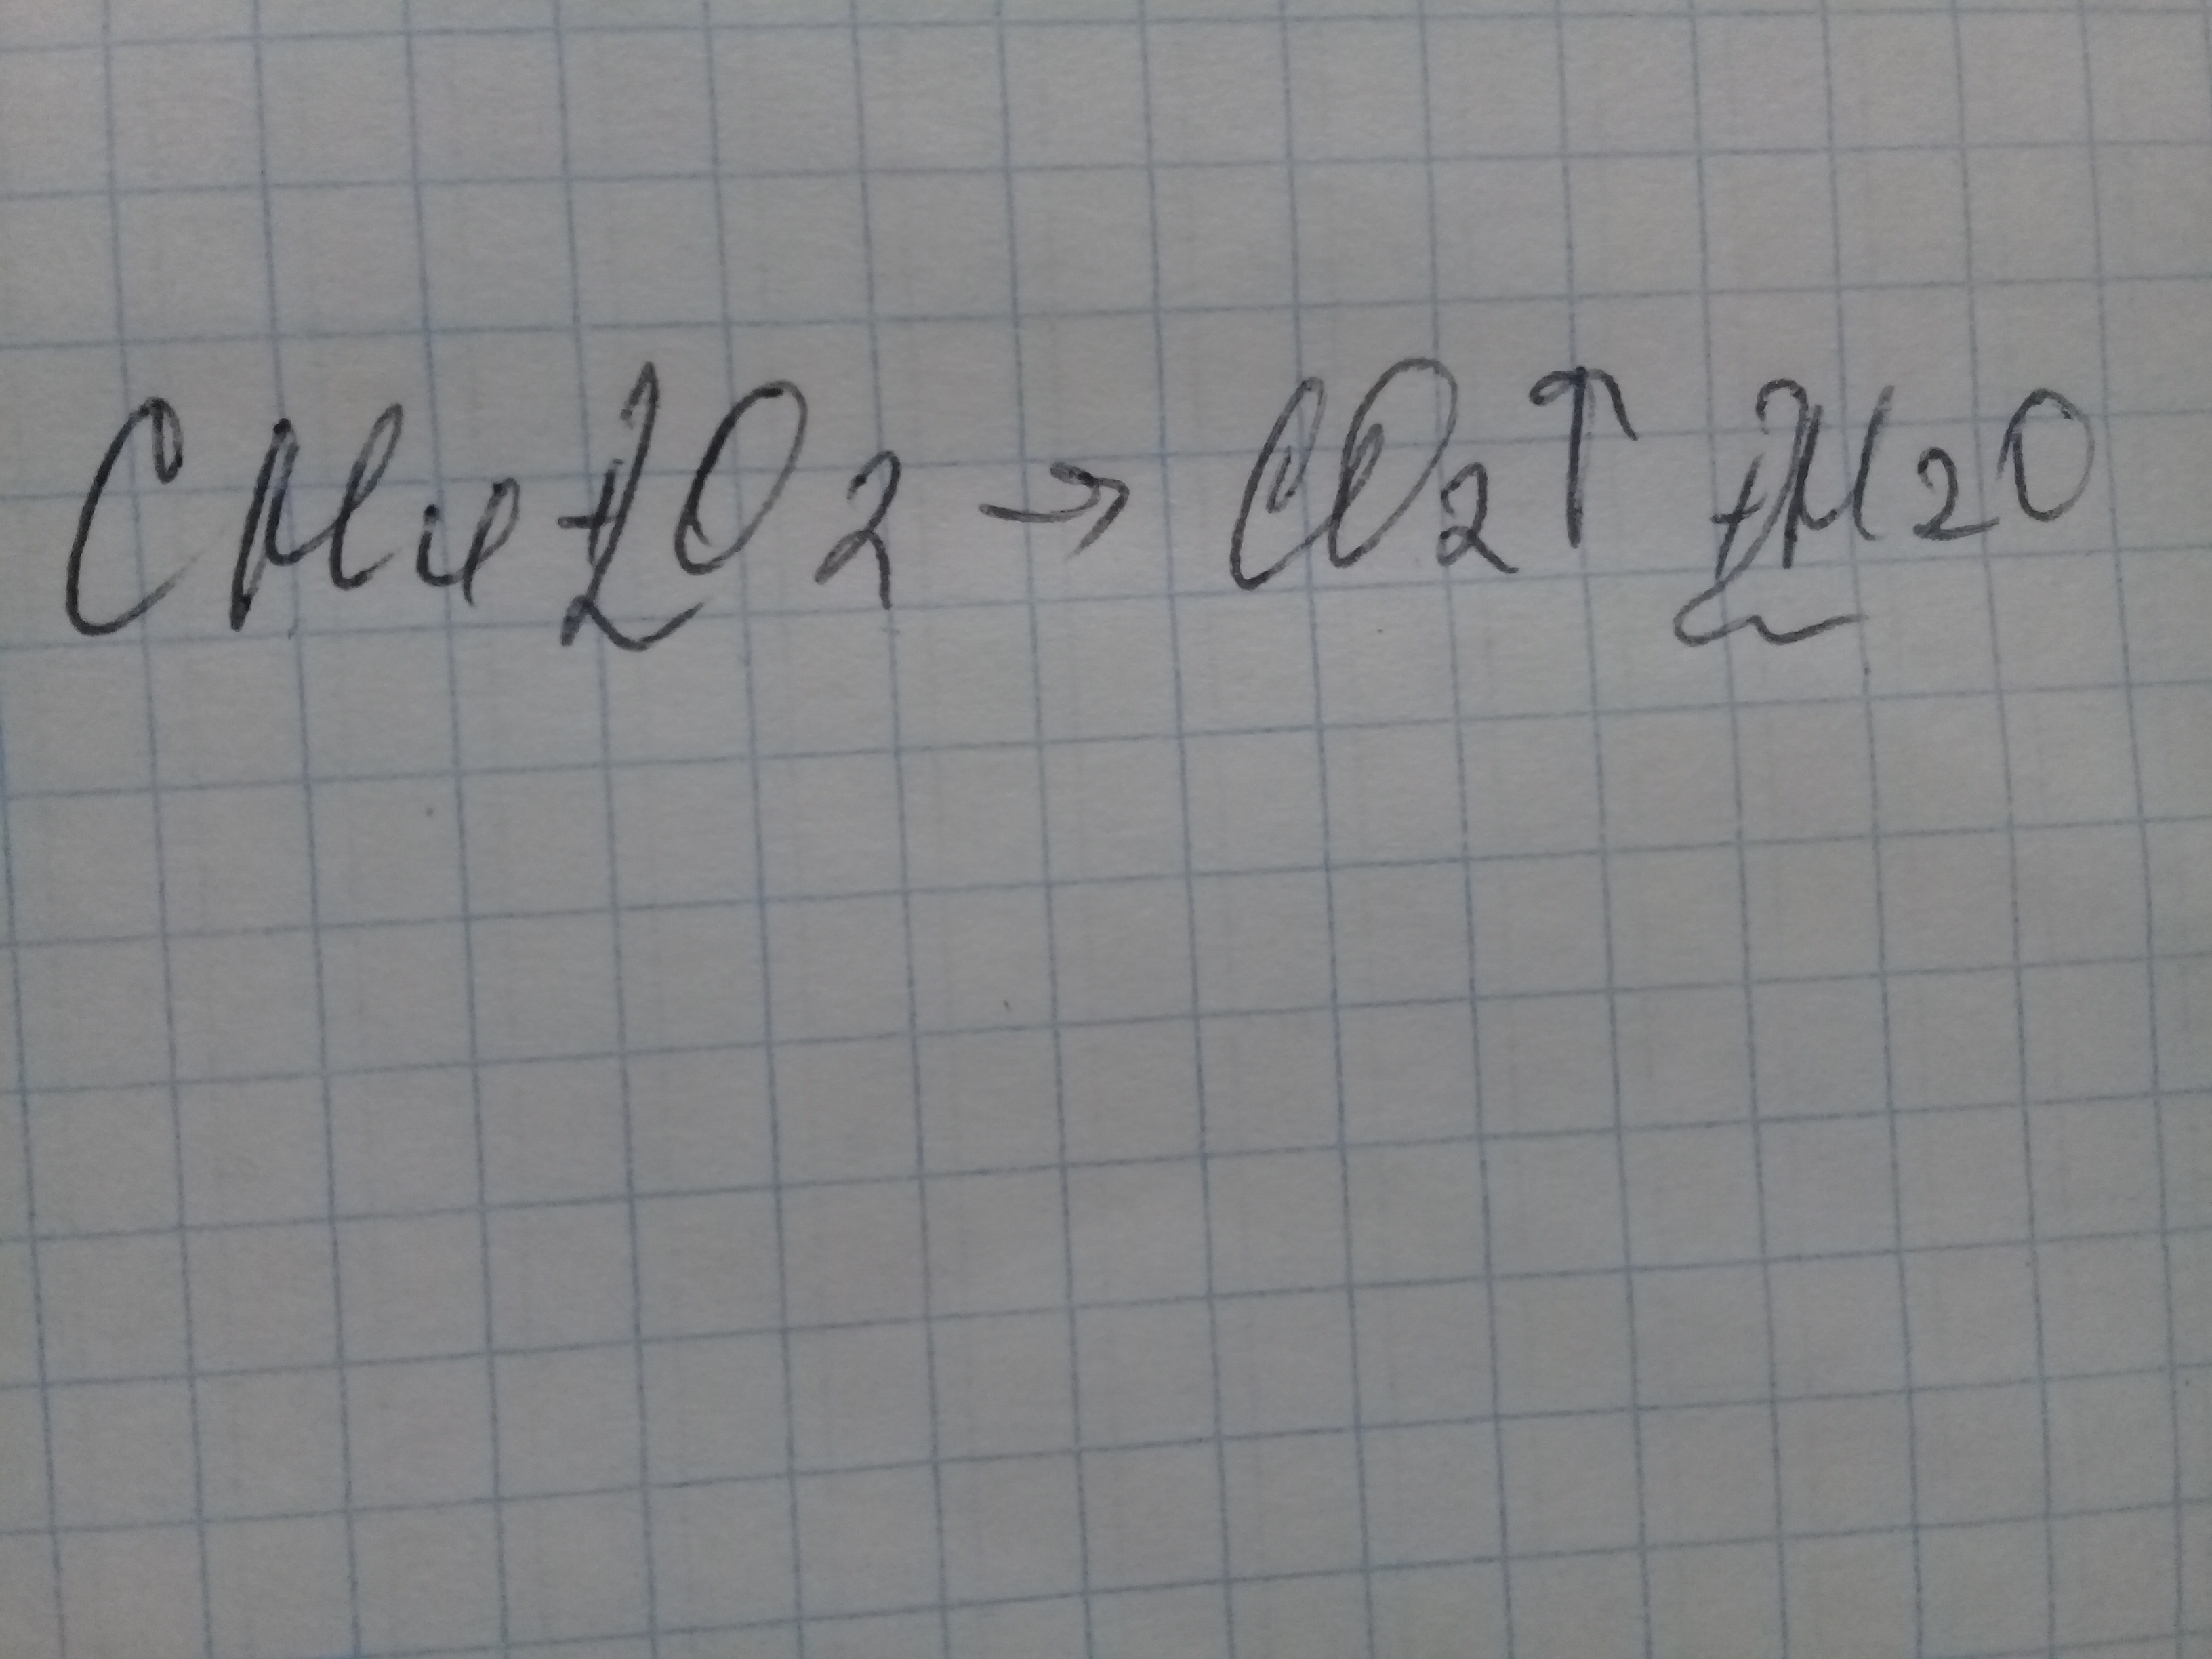 CH4 + 2O2 → CO2↑ + 2H2O